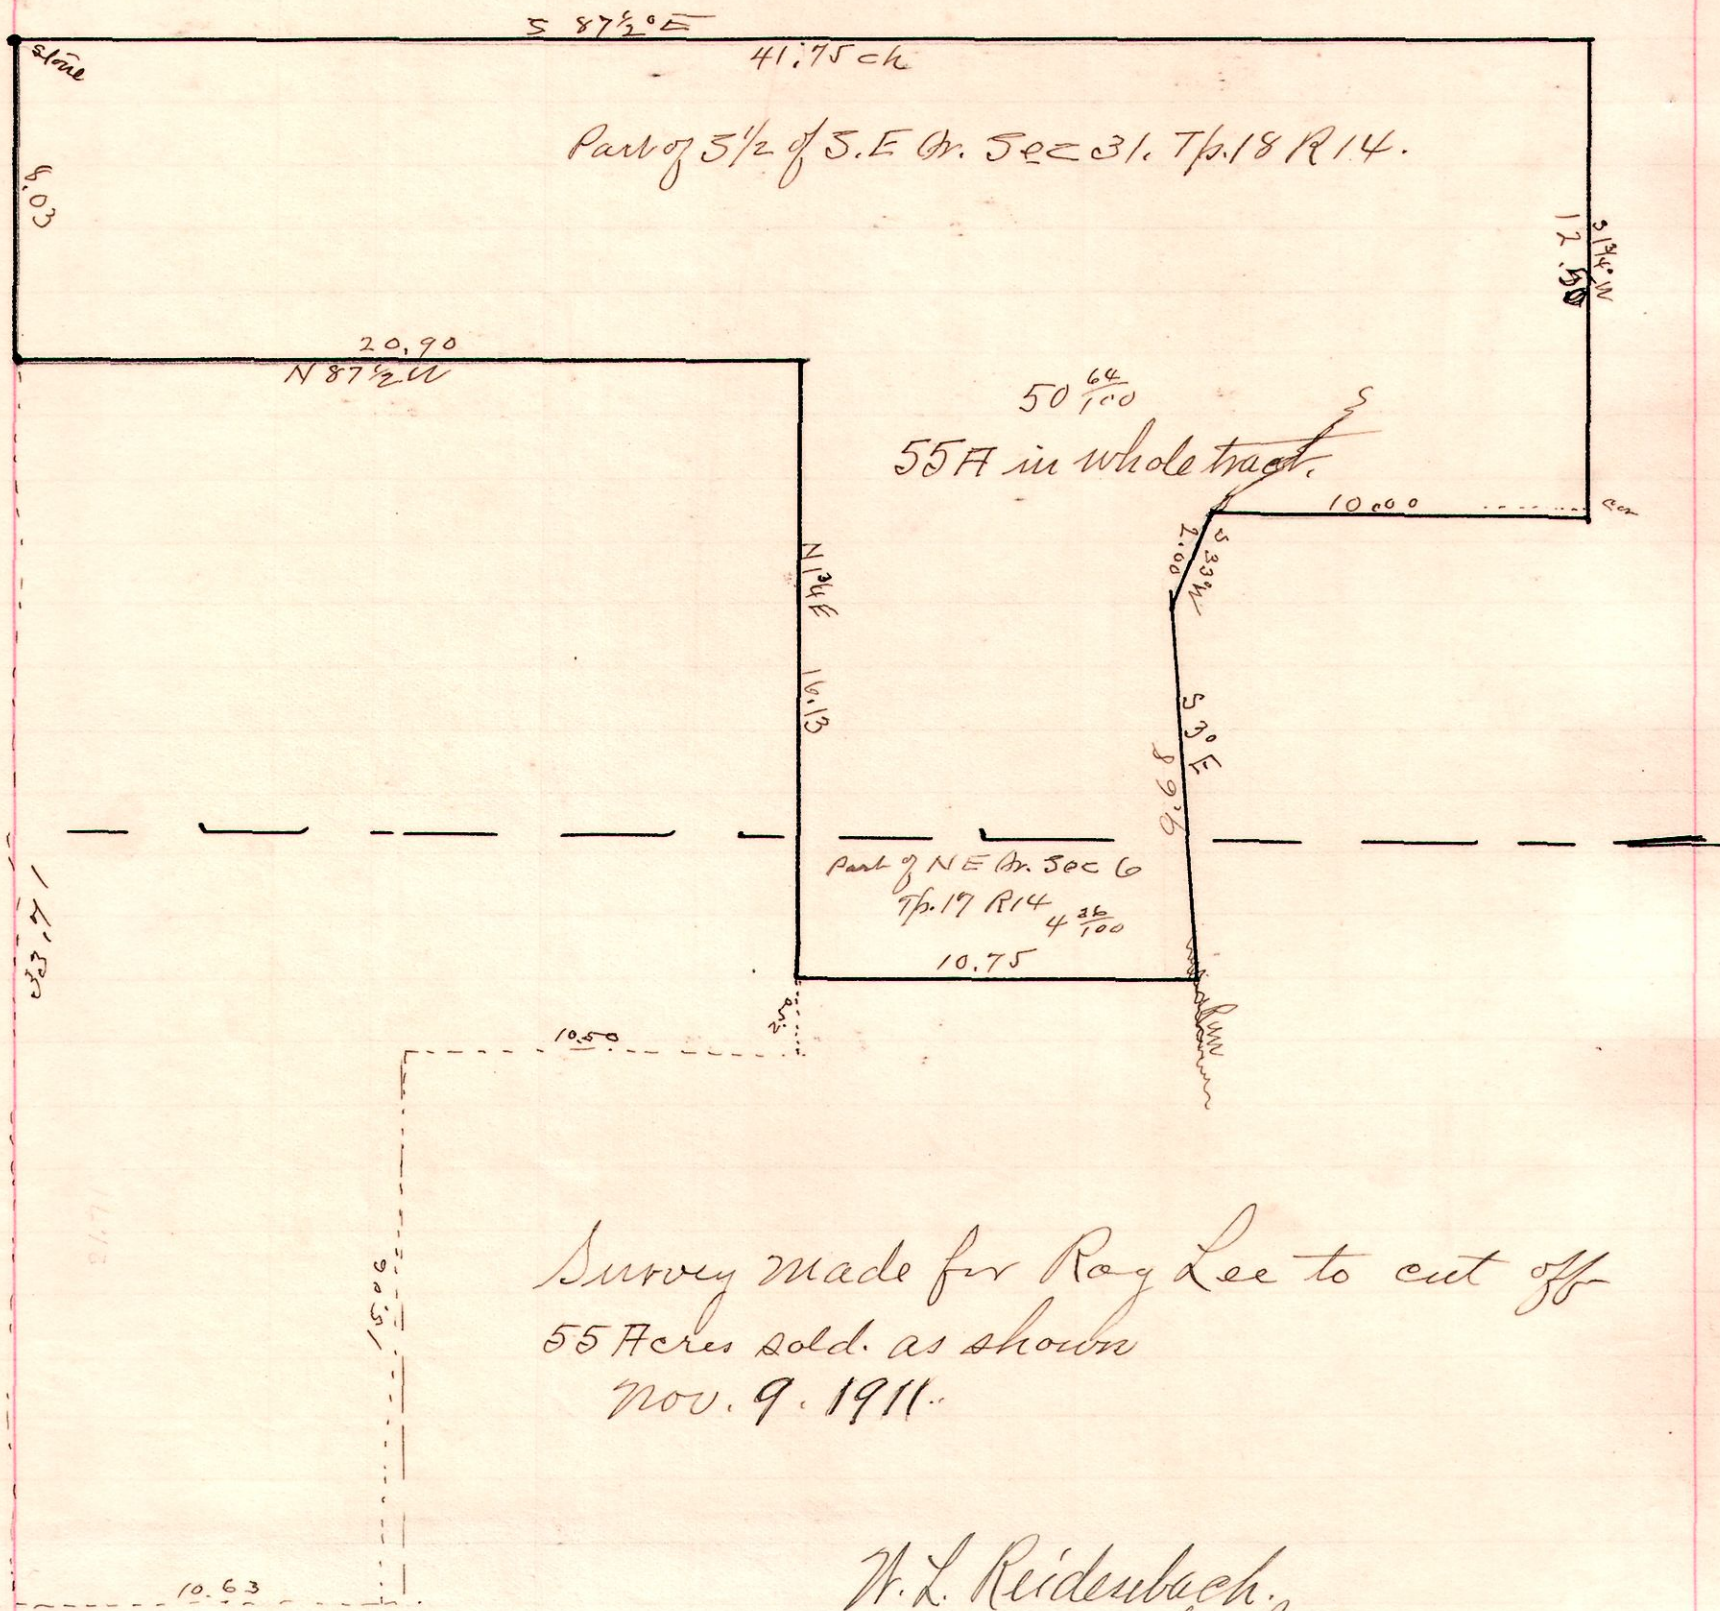 S 87½° E
41.75 ch
Stone
Part of S½ of S.E Qr. Sec 31. Tp. 18 R 14.
8.03
S 1¾° W
12.50
20.90
N 87½ W
50 64/100
S
55 A in whole tract.
10.00
S 33° W
2.00
N 1¾ E
16.13
S 3° E
9.68
Part of N E Qr. Sec 6
Tp. 17 R 14
4 36/100
10.75
33.71
10.50
Run
15.09
Survey made for Ray Lee to cut off
55 Acres sold. as shown
Nov. 9. 1911.
10.63
W. L. Reidenbach.